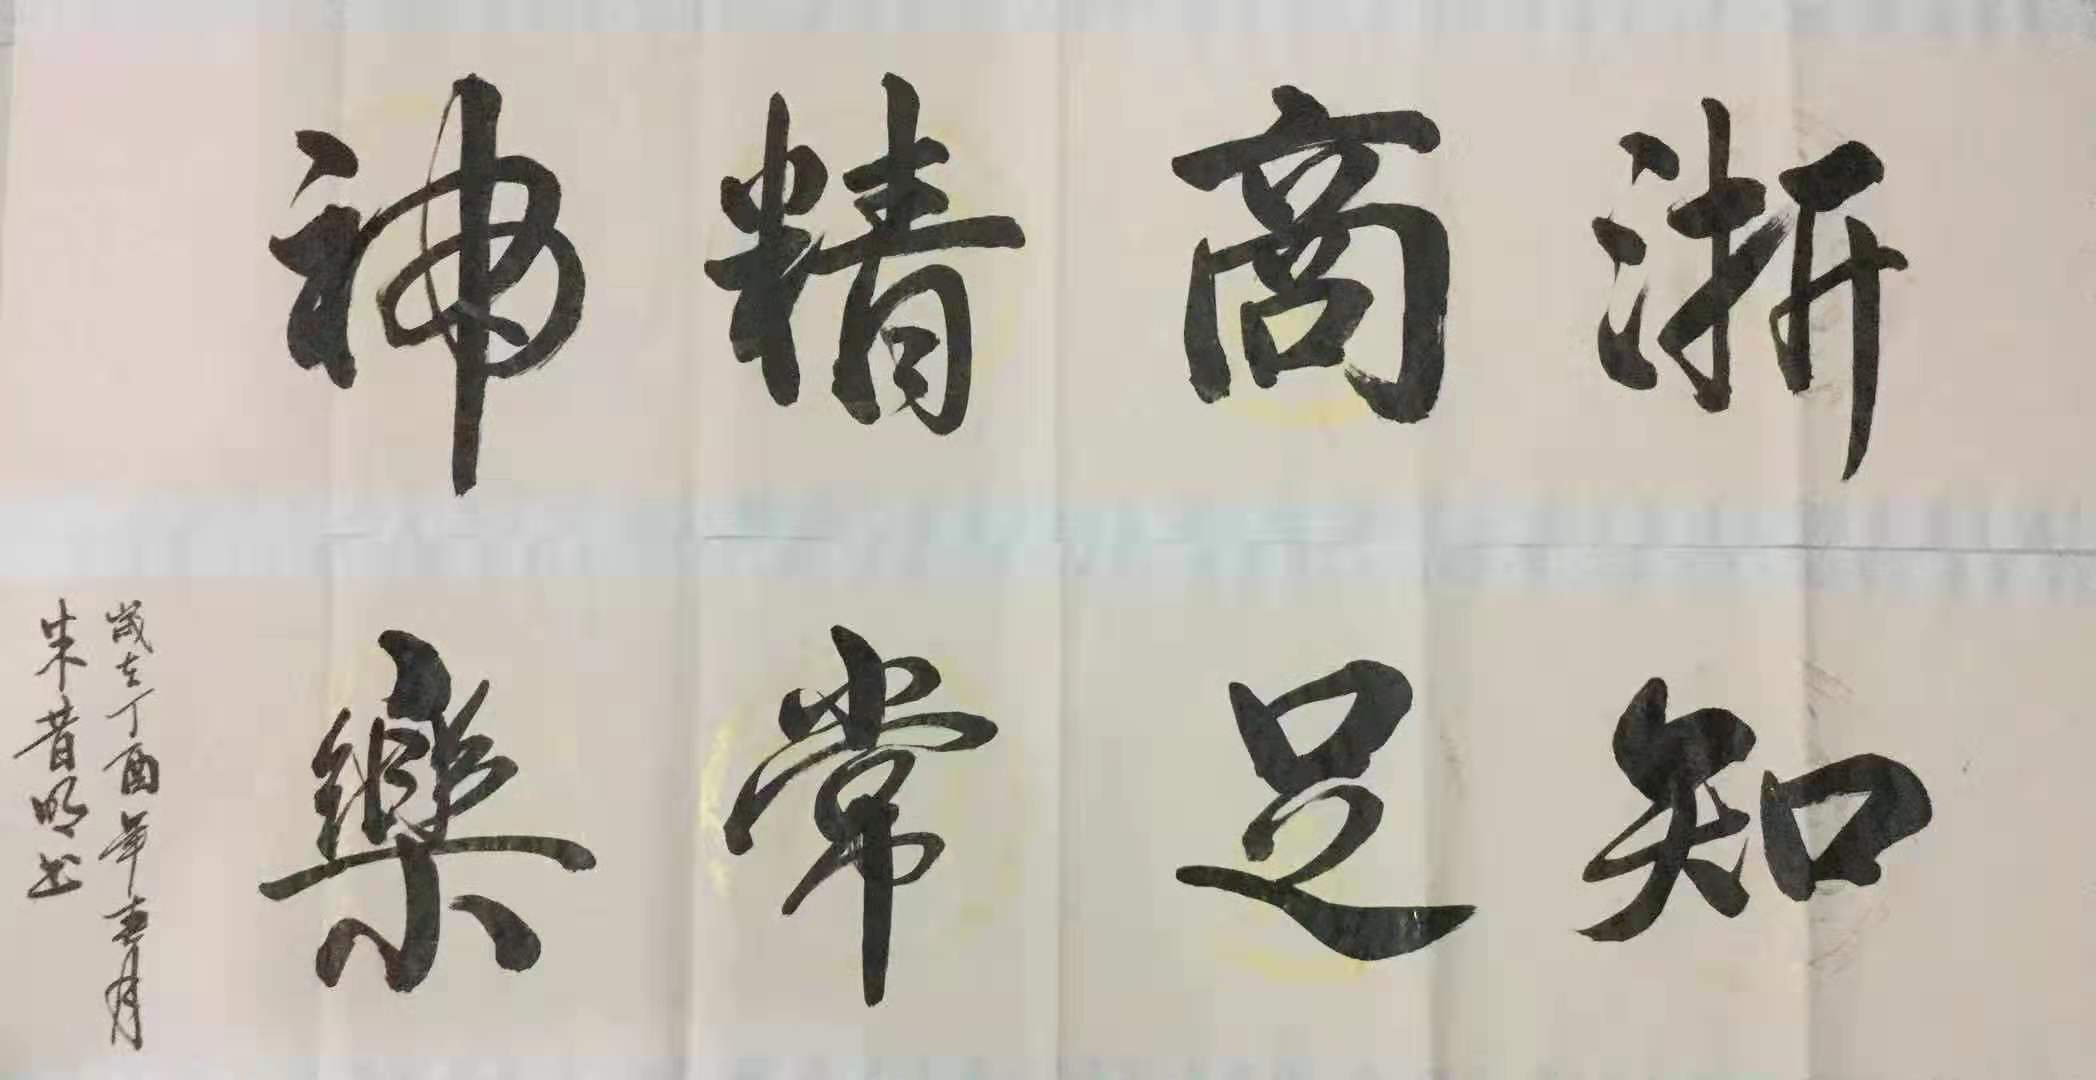 浙商精神
知足常樂
歲在丁酉年春月
朱昔明书